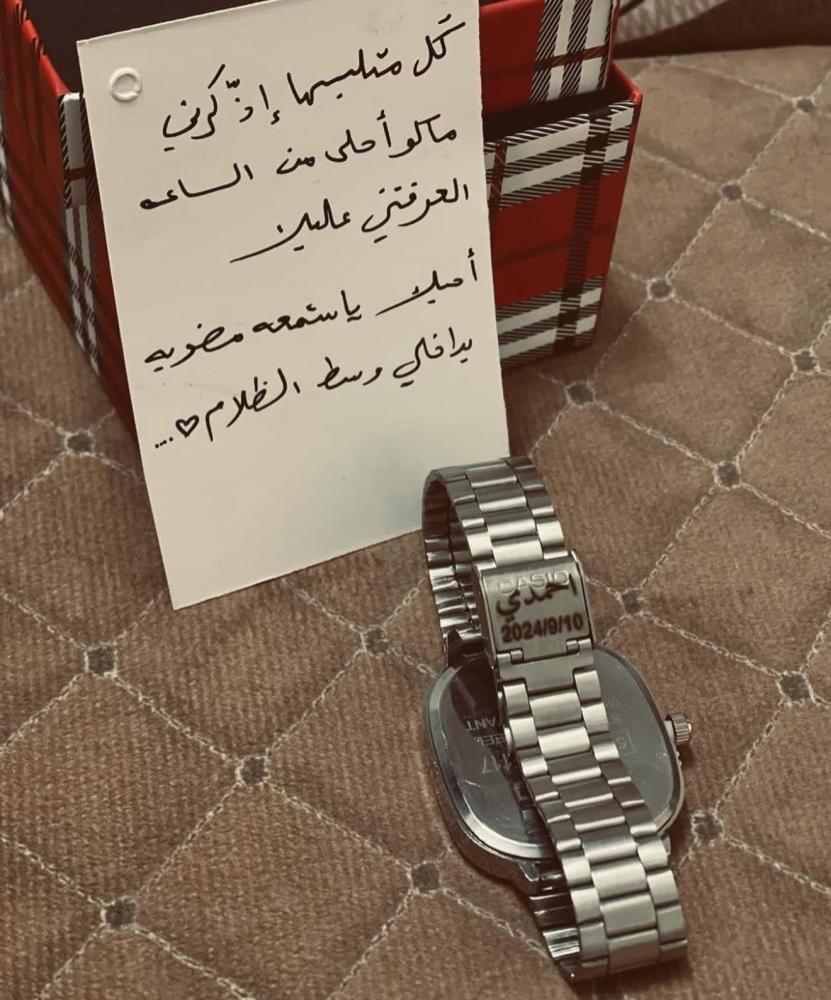 كل متلبسها إذّكرني
ماكو أحلى من الساعه
العرفتني عليك
أحبك يا شمعه مضويه
بداخلي وسط الظلام♡...
CASIO
احمدي
2024/9/10